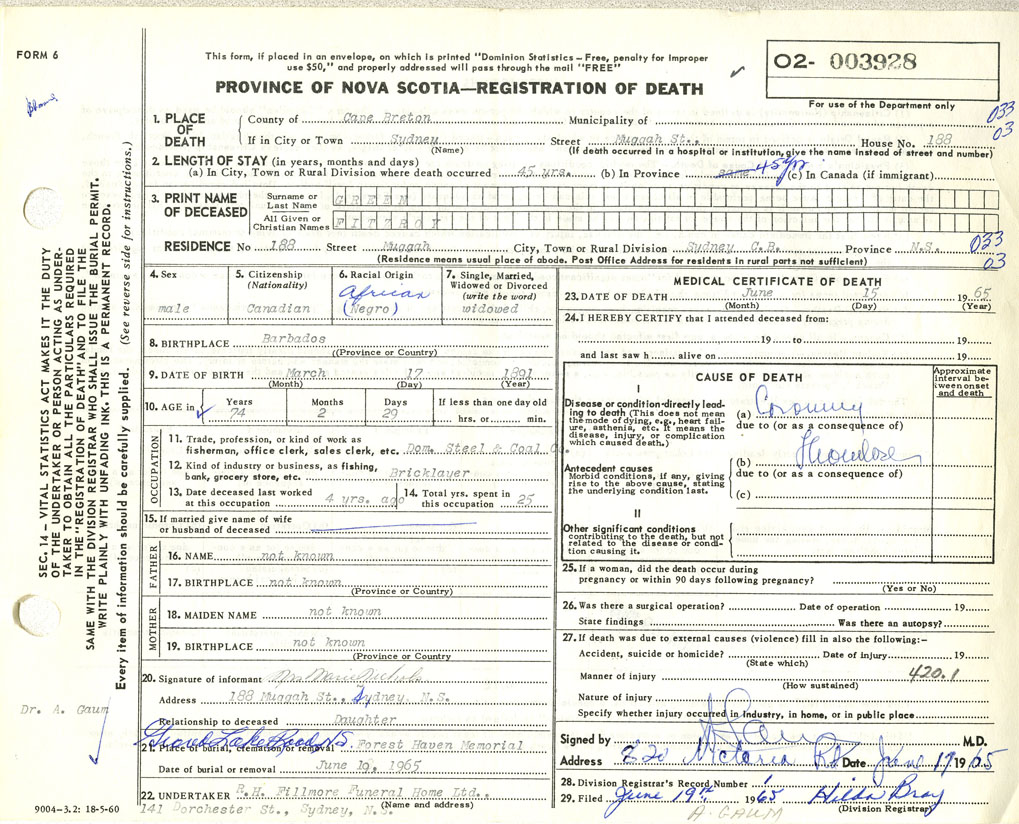 FORM 6
This form, if placed in an envelope, on which is printed "Dominion Statistics—Free, penalty for Improper
use $50," and properly addressed will pass through the mail "FREE"
O2- 003928
For use of the Department only
PROVINCE OF NOVA SCOTIA—REGISTRATION OF DEATH
1. PLACE OF DEATH
County of Cape Breton Municipality of
033
03
If in City or Town Sydney Street Muggah St., House No. 188
(Name) (If death occurred in a hospital or institution, give the name instead of street and number)
2. LENGTH OF STAY (in years, months and days)
(a) In City, Town or Rural Division where death occurred 45 yrs. (b) In Province same 45 yr (c) In Canada (if immigrant)
3. PRINT NAME OF DECEASED
Surname or Last Name GREEN
All Given or Christian Names FITZROY
RESIDENCE No 188 Street Muggah City, Town or Rural Division Sydney C.B. Province N.S. 033
03
(Residence means usual place of abode. Post Office Address for residents in rural parts not sufficient)
4. Sex
male
5. Citizenship
(Nationality)
Canadian
6. Racial Origin
African
(Negro)
7. Single, Married,
Widowed or Divorced
(write the word)
widowed
8. BIRTHPLACE Barbados
(Province or Country)
9. DATE OF BIRTH March 17 1891
(Month) (Day) (Year)
10. AGE in
Years Months Days If less than one day old
74 2 29 hrs. or min.
OCCUPATION
11. Trade, profession, or kind of work as
fisherman, office clerk, sales clerk, etc. Dom. Steel & Coal Co.
12. Kind of industry or business, as fishing,
bank, grocery store, etc. Bricklayer
13. Date deceased last worked
at this occupation 4 yrs. ago
14. Total yrs. spent in
this occupation 25
15. If married give name of wife
or husband of deceased
FATHER
16. NAME not known
17. BIRTHPLACE not known
(Province or Country)
MOTHER
18. MAIDEN NAME not known
19. BIRTHPLACE not known
(Province or Country
20. Signature of informant Mrs Marie Nichols
Address 188 Muggah St., Sydney, N.S.
Relationship to deceased Daughter
Grand Lake Road NS
21. Place of burial, cremation or removal Forest Haven Memorial
Date of burial or removal June 19, 1965
22. UNDERTAKER R.H. Fillmore Funeral Home Ltd.,
141 Dorchester St., Sydney, N.S. (Name and address)
9004-3.2: 18-5-60
SEC. 14—VITAL STATISTICS ACT MAKES IT THE DUTY
OF THE UNDERTAKER OR PERSON ACTING AS UNDER-
TAKER TO OBTAIN ALL THE PARTICULARS REQUIRED
IN THE "REGISTRATION OF DEATH" AND TO FILE THE
SAME WITH THE DIVISION REGISTRAR WHO SHALL ISSUE THE BURIAL PERMIT.
WRITE PLAINLY WITH UNFADING INK. THIS IS A PERMANENT RECORD.
Every item of information should be carefully supplied. (See reverse side for instructions.)
Dr. A. Gaum
MEDICAL CERTIFICATE OF DEATH
23. DATE OF DEATH June 15 1965
(Month) (Day) (Year)
24. I HEREBY CERTIFY that I attended deceased from:
19 to 19
and last saw h alive on 19
CAUSE OF DEATH
Approximate
interval be-
tween onset
and death
I
Disease or condition directly lead-
ing to death (This does not mean
the mode of dying, e.g., heart fail-
ure, asthenia, etc. It means the
disease, injury, or complication
which caused death.)
(a) Coronary
due to (or as a consequence of)
Antecedent causes
Morbid conditions, if any, giving
rise to the above cause, stating
the underlying condition last.
(b)
due to (or as a consequence of)
(c)
II
Other significant conditions
contributing to the death, but not
related to the disease or condi-
tion causing it.
25. If a woman, did the death occur during
pregnancy or within 90 days following pregnancy?
(Yes or No)
26. Was there a surgical operation? Date of operation 19
State findings Was there an autopsy?
27. If death was due to external causes (violence) fill in also the following:—
Accident, suicide or homicide? Date of injury 19
(State which)
Manner of injury 420.1
(How sustained)
Nature of injury
Specify whether injury occurred in industry, in home, or in public place
Signed by A Gaum M.D.
Address 220 Victoria Rd Date June 17 1965
28. Division Registrar's Record Number
29. Filed June 19th 1965 Hilda Bray
(Division Registrar)
A. GAUM